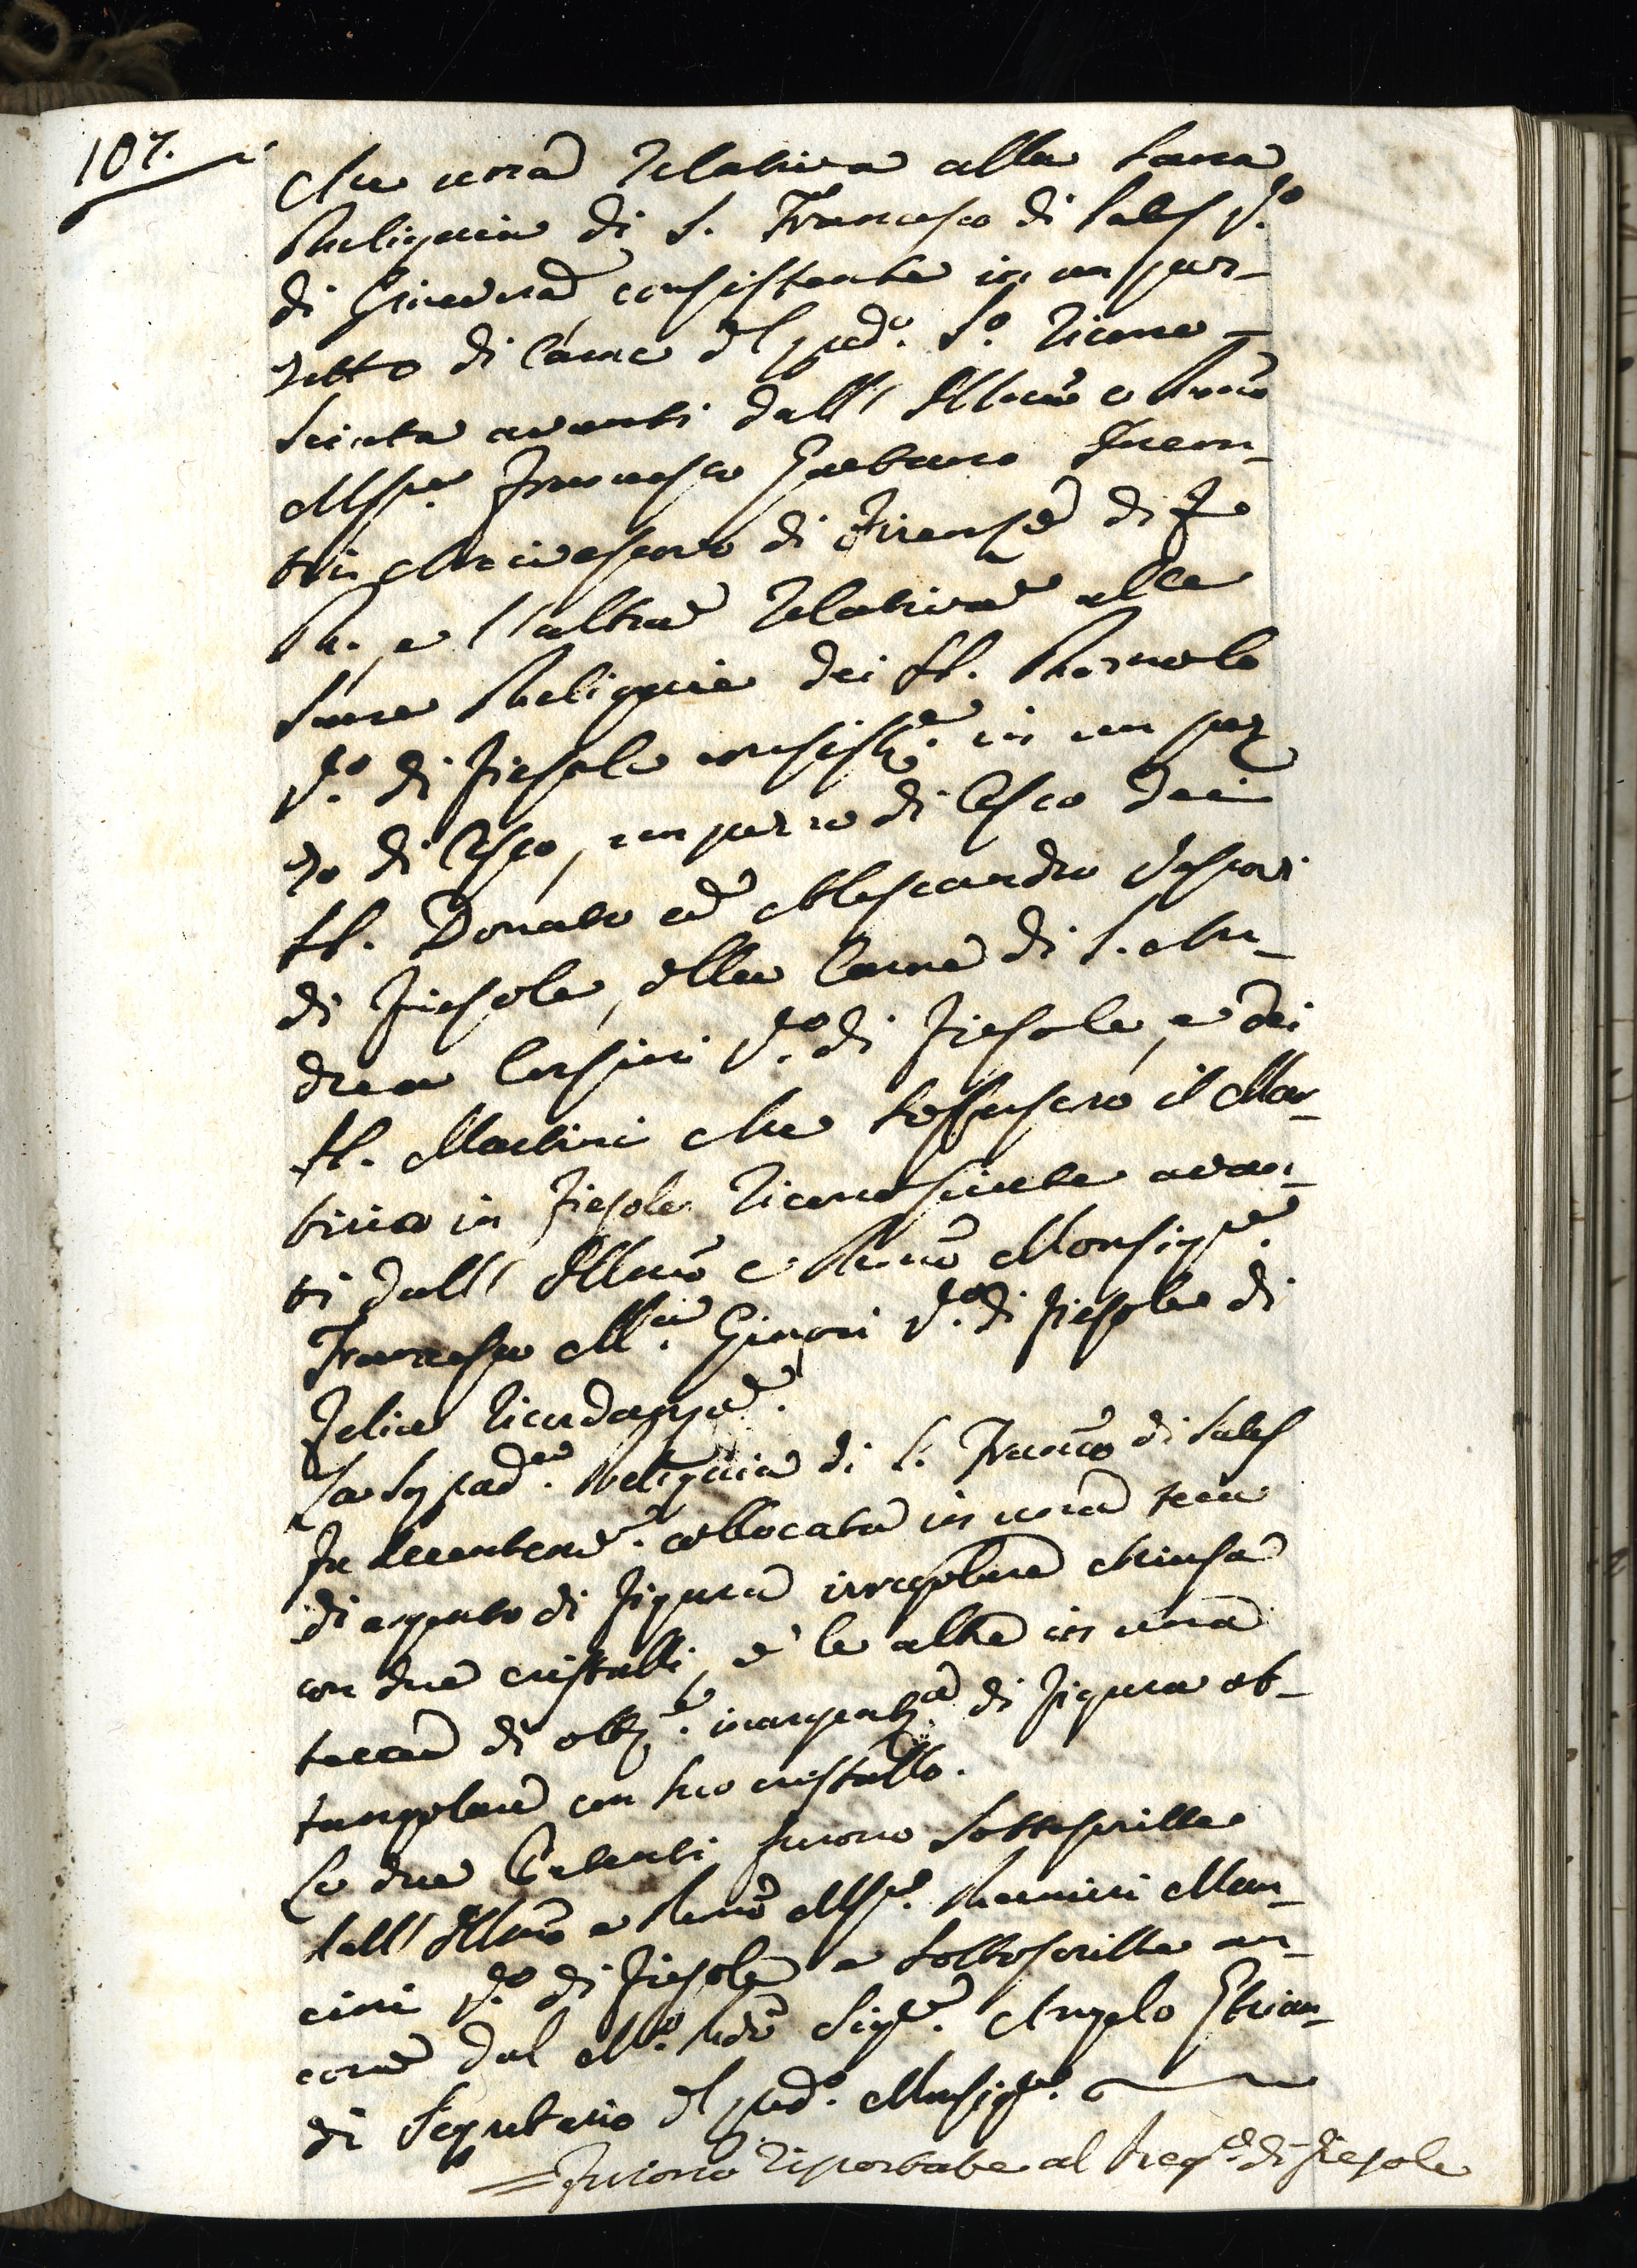 107.
che una relativa alla Sacra
Reliquia di S. Francesco di Sales V.o
di Ginevra consistente in un pez-
zetto di Carne del pred.o S.o ricono-
sciuta avanti dall' Illmo e Rmo
Msre. Francesco Gaetano Incon-
tri Arcivescovo di Firenze di F.
R. e l'altra relativa alle
Sacre Reliquie dei SS. Romolo
V.o di Fiesole consist.e in un pez
zo di Osso, un pezzo di Osso dei
SS. Donato ed Alessandro Vescovi
di Fiesole, della Carne di S. An-
drea Corsini V.o di Fiesole, e dei
SS. Martiri che soffersero il Mar-
tirio in Fiesole riconosciute avan-
ti dall' Illmo e Rmo Monsig.re
Francesco M.a Ginori V.o di Fiesole di
Felice ricordanza.
La Soprad.a Reliquia di S. Franco di Sales
fu decentem.e collocata in una teca
di argento di figura irregolare chiusa
con due cristalli, e le altre in una
teca di ott.e inargent.a di figura ot-
tangolare con suo cristallo.
Le due Autentiche furono Sottoscritte
dall' Illmo e Rmo Msre. Ranieri Man-
cini V.o di Fiesole e sottoscritte an-
core dal M.o Rdo Sigre. Angelo
di Segretario del pred.o Monsigre.
= furono riportate al Sreg.o di Fiesole